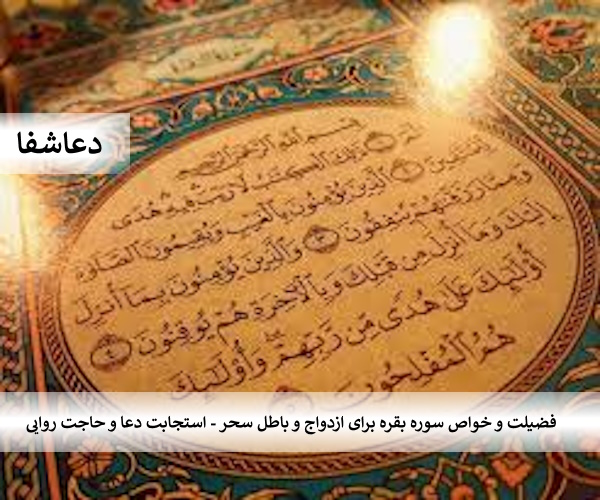 دعاشفا
بِسْمِ اللَّهِ الرَّحْمَٰنِ الرَّحِيمِ
ذَٰلِكَ الْكِتَابُ لَا رَيْبَ فِيهِ هُدًى
الَّذِينَ يُؤْمِنُونَ بِالْغَيْبِ وَيُقِيمُونَ الصَّلَوٰةَ
وَمِمَّا رَزَقْنَٰهُمْ يُنفِقُونَ ٣ وَالَّذِينَ يُؤْمِنُونَ بِمَا أُنزِلَ
إِلَيْكَ وَمَا أُنزِلَ مِن قَبْلِكَ وَبِالْآخِرَةِ هُمْ يُوقِنُونَ ٤
أُولَٰئِكَ عَلَىٰ هُدًى مِّن رَّبِّهِمْ وَأُولَٰئِكَ
هُمُ الْمُفْلِحُونَ
فضیلت و خواص سوره بقره برای ازدواج و باطل سحر - استجابت دعا و حاجت روایی